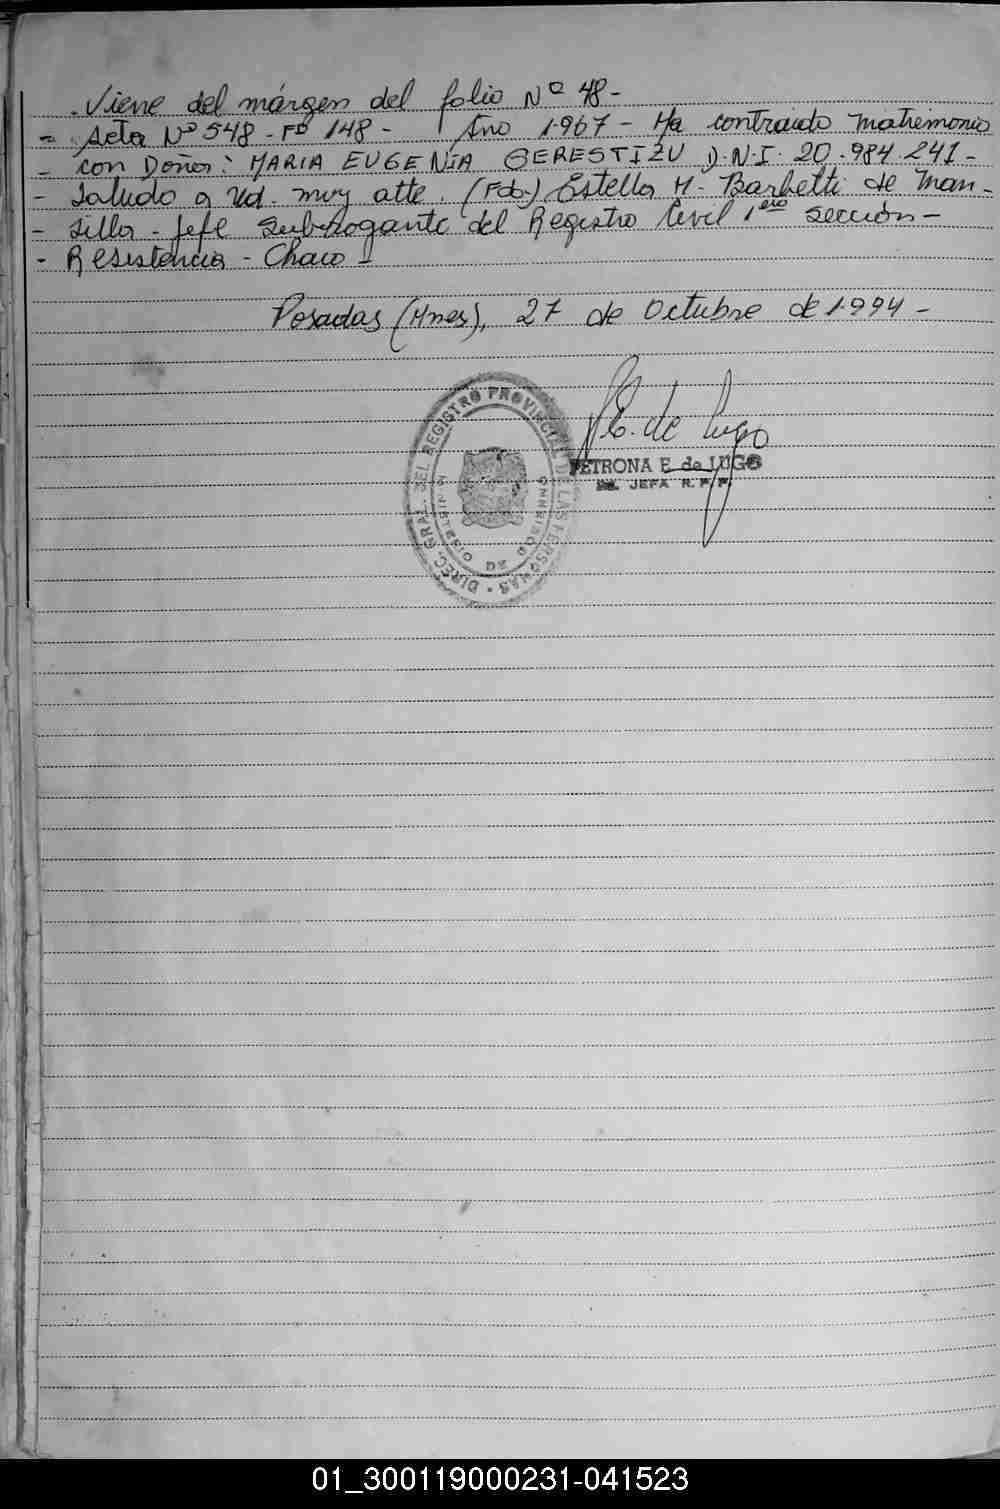 . Viene del márgen del folio Nº 48 -
- Acta Nº 548 - Fº 148 - Año 1967 - Ha contraido matrimonio
- con Doña: MARIA EUGENIA GERESTIZU D.N.I. 20.984.241 -
- Saludo a Ud. muy atte. (Fdo.) Estella M. Barbetti de Man-
- silla - Jefe Subrrogante del Registro Civil 1era sección -
- Resistencia - Chaco -
Posadas (Mnes), 27 de Octubre de 1994 -
P.E. de Lugo
PETRONA E. de LUGO
JEFA R.P.P.
DIREC. GRAL. DEL REGISTRO PROVINCIAL DE LAS PERSONAS
MINISTERIO DE GOBIERNO
01_300119000231-041523